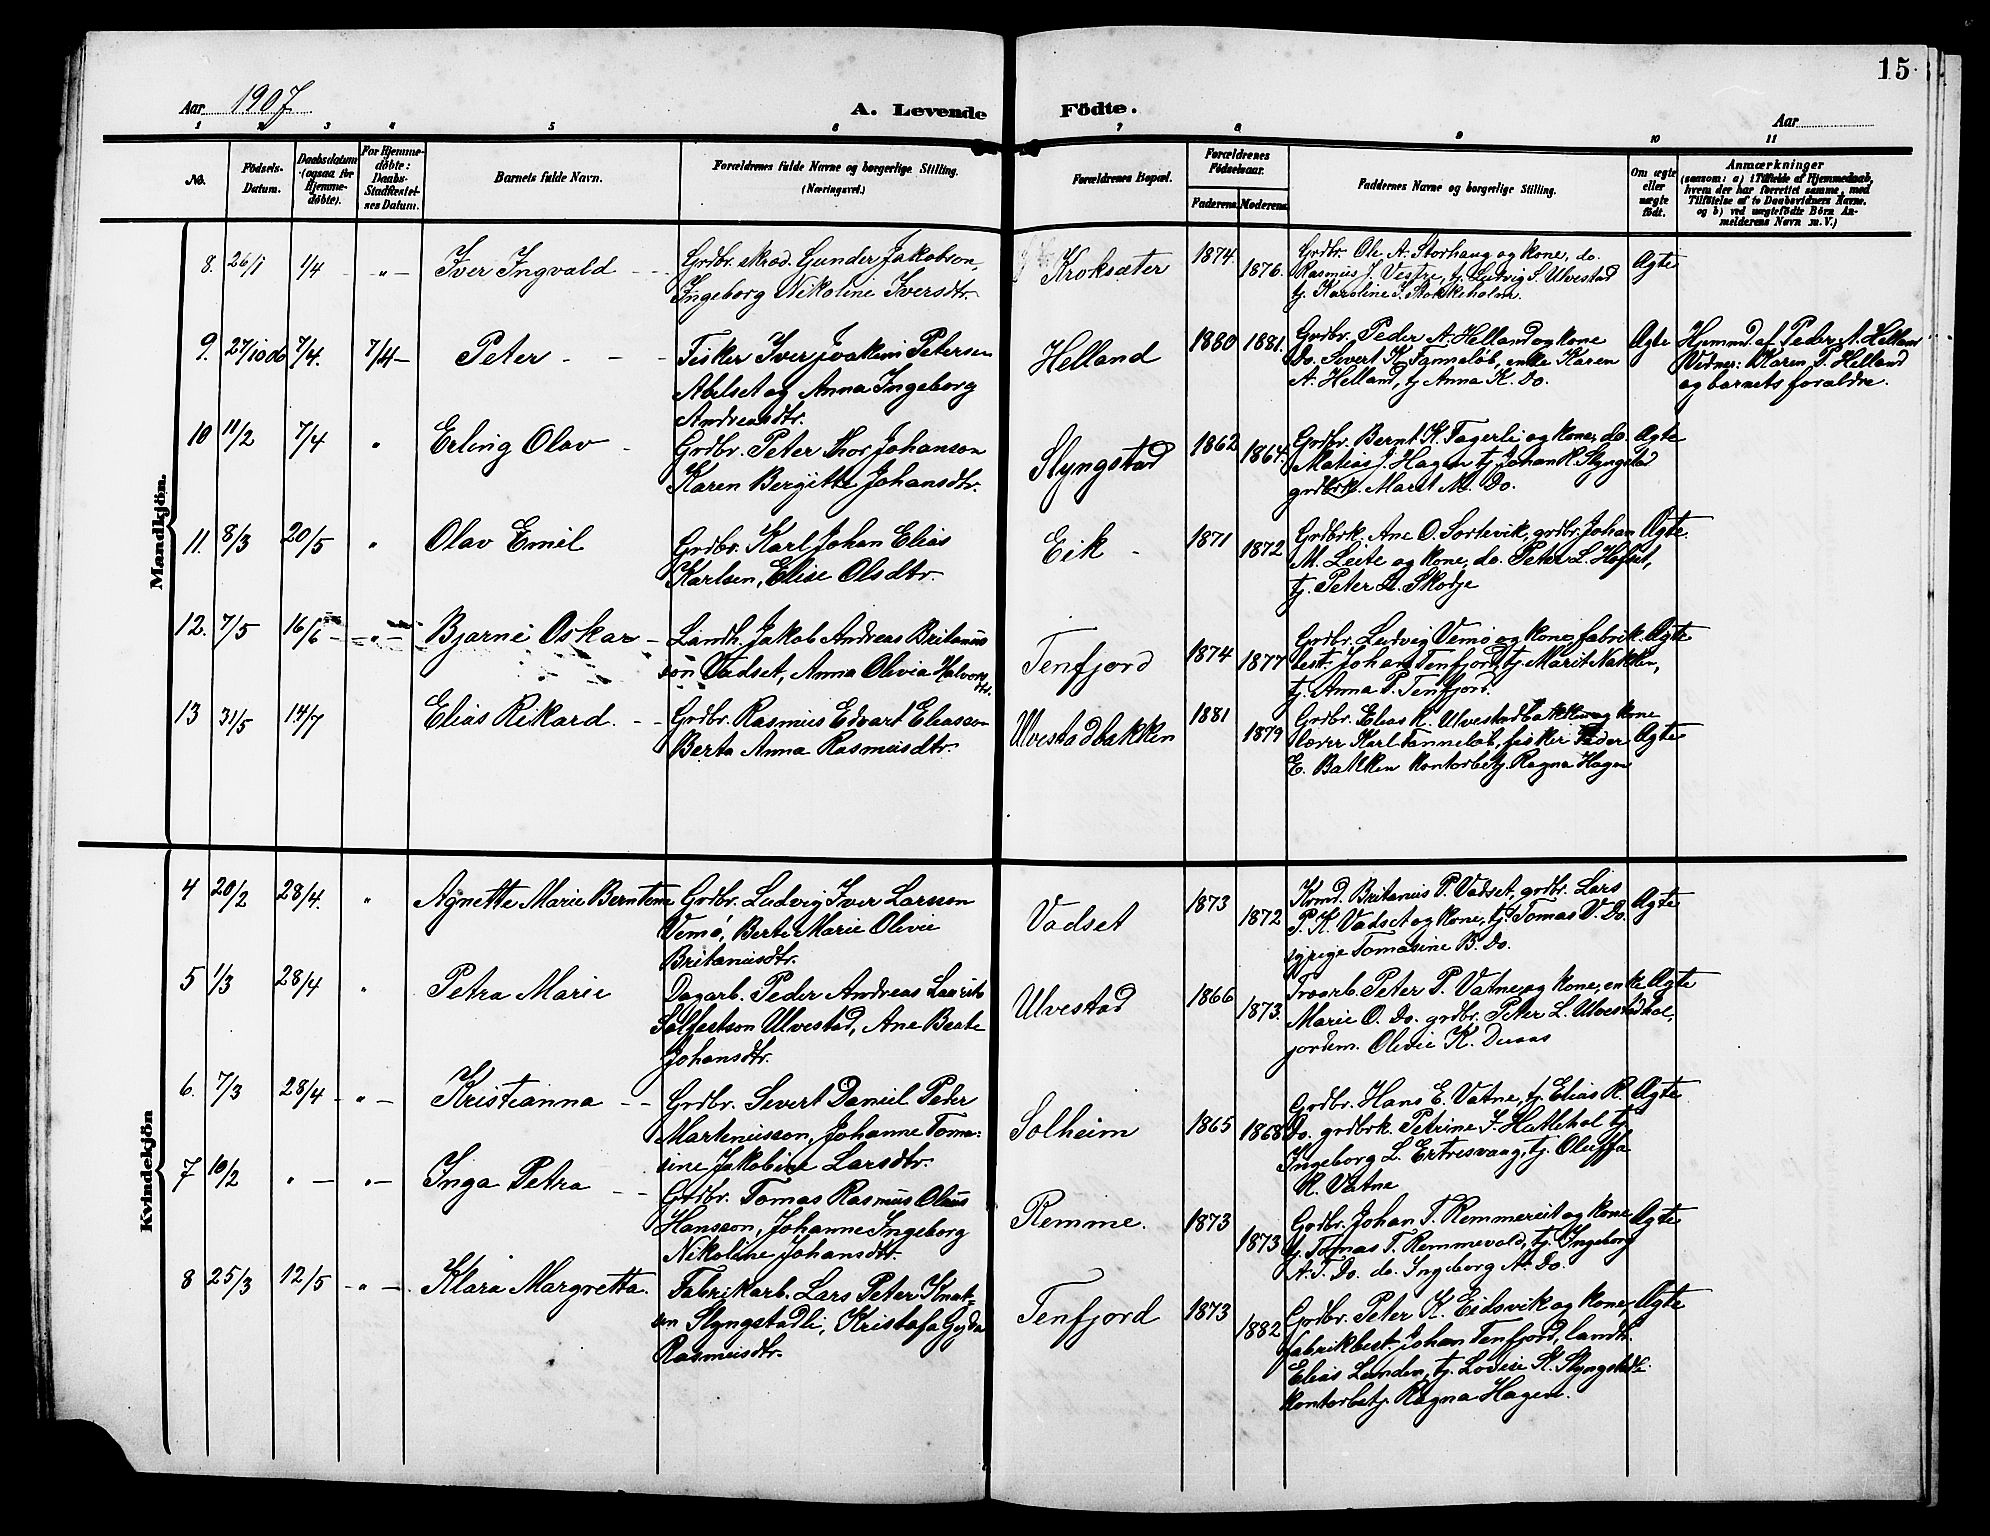 15
Aar 1907
A. Levende Födte.
Aar
1 2 3 4 5 6 7 8 9 10 11
No.
Födsels-
Datum.
Daabsdatum
(ogsaa for
Hjemme-
døbte).
For Hjemme-
døbte:
Daabs-
Stadfæstel-
ses Datum.
Barnets fulde Navn.
Forældrenes fulde Navne og borgerlige Stilling.
(Næringsvei.)
Forældrenes Bopæl.
Forældrenes
Födselsaar.
Faderens. Moderens.
Faddernes Navne og borgerlige Stilling.
Om ægte
eller
uægte
födt.
Anmærkninger
(saasom: a) i Tilfælde af Hjemmedaab,
hvem der har forrettet samme, med
Tilföielse af to Daabsvidners Navne.
og b) ved uægtefödte Börn An-
melderens Navn m.V.)
Mandkjön.
8. 26/1 1/4 - „ - Iver Ingvald - -
Grdbr. skræd. Gunder Jakobson,
Ingeborg Nikoline Iversdtr.
Kroksæter 1874 1876.
Grdbr. Ole A. Storhaug og kone, do.
Rasmus J. Vestre, tj. Ludvig S. Ulvestad
tj. Karoline I. Stokkeholm.
Ægte
9. 27/10 06 7/4. 7/4 - Peter - - -
Fisker Iver Joakim Petersen
Abelset og Anna Ingeborg
Andreasdtr.
Helland 1880 1881.
Grdbr. Peder A. Helland og kone
Do. Sivert K. Tanneløb, enke Karen
A. Helland, tj. Anna K. Do.
Ægte
Hjemmd. af Peder A. Helland
Vidner: Karen P. Helland
og barnets foræ​ldre.
10 11/2 7/4 „ Erling Olav -
Grdbr. Peter Thor Johanson
Karen Bergitte Johansdtr.
Slyngstad 1862 1864.
Grdbr. Bernt K. Fagerli og kone, do.
Matias J. Hagen tj. Johan K. Slyngstad
grdbrk. Marit M. Do.
Ægte
11. 8/3 20/5 „ Olav Emil
Grdbr. Karl Johan Elias
Karlsen, Elise Olsdtr.
Eik - 1871 1872
Grdbrk. Ane O. Sortevik, grdbr. Johan
M. Leite og kone, do. Peter L. Hofset,
tj. Peter L. Skodje
Ægte.
12. 7/5 16/6 - „ - Bjarne Oskar -
Landh. Jakob Andreas Britanius
son Vadset, Anna Olivia Halvors
dtr.
Tenfjord 1874 1877
Grdbr. Ludvig Vemø og kone, fabrik.
best. Johan Tenfjord, tj. Marit Nakken,
tj. Anna P. Tenfjord.
Ægte
13 31/5 14/7 Elias Rikard. - -
Grdbr. Rasmus Edvart Eliasson
Berta Anna Rasmusdtr.
Ulvestadbakken 1881 1879
Grdbr. Elias K. Ulvestadbakken og kone
lærer Karl Tanneløb, fisker Peder
E. Bakken kontorbetj. Ragna Hagen
Ægte
Kvindekjön
4 20/2 28/4. „ Agnette Marie Berntine
Grdbr. Ludvig Iver Larsson
Vemø, Berte Marie Olivie
Britaniusdtr.
Vadset 1873 1872
Kømd. Britanius P. Vadset, grdbr. Lars
P. K. Vadset og kone, tj. Tomas V. Do.
syrige Tomasine B. Do.
Ægte
5 1/3 28/4 „ Petra Marie
Dagarb. Peder Andreas Laurits
Solfestson Ulvestad, Ane Beate
Johansdtr.
Ulvestad 1866 1873.
Peter P. Vatne og kone, enke
Marie O. Do. grdbr. Peter L. Ulvestadhol,
jordem. Olivie K.
Ægte
6. 7/3 28/4 - „ - Kristianna - -
Grdbr. Severt Daniel Peder
Martinusson, Johanne Toma-
sine Jakobine Larsdtr.
Solheim 1865 1868
Grdbr. Hans E. Vatne, tj. Elias R.
Do. grdbrk. Petrine I. Hallehol tj.
Ingeborg L. Ertresvaag, tj. Oluffa
K. Vatne
Ægte
7 10/2 „ - „ - Inga Petra - -
Grdbr. Tomas Rasmus Olaus
Hansson, Johanne Ingeborg
Nikoline Johansdtr.
Remme. 1873 1873
Grdbr. Johan T. Remmereit og kone
tj. Tomas T. Remmevold, tj. Ingeborg
A. T. Do. do. Ingeborg A. Do.
Ægte
8 25/3 12/5 - „ - Klara Margretta.
Fabrikarb. Lars Peter Knut-
sen Slyngstadli, Kristofa Gyda
Rasmusdtr.
Tenfjord 1873 1882
Grdbr. Peter K. Eidsvik og kone,
fabrikbest. Johan Tenfjord, landh.
Elias Lunden, tj. Lovise K. Slyngstadli
kontorbetj. Ragna Hagen.
Ægte